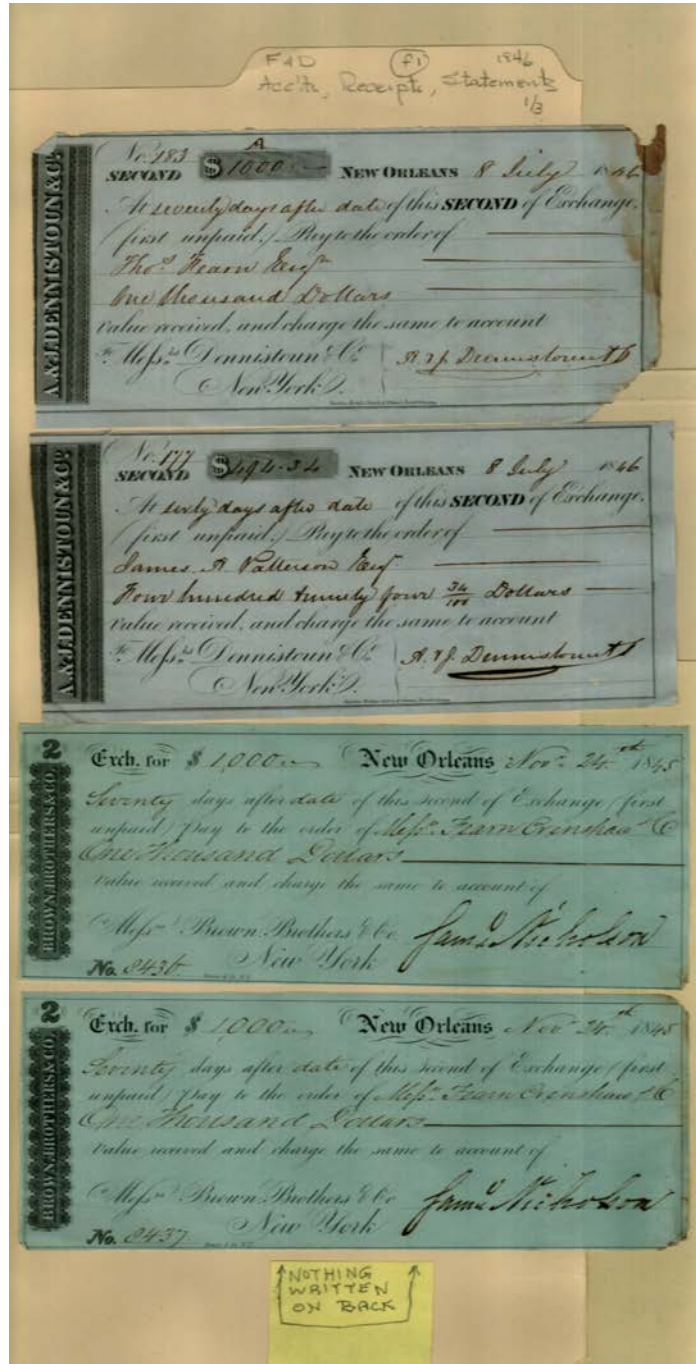 F&D (f1) 1846
Acc'ts, Receipts, Statements
1/3
A. & J. DENNISTOUN & Co.
A
No. 183
SECOND $ 1000 — NEW ORLEANS 8 July 1846
At seventy days after date of this SECOND of Exchange,
(first unpaid.) Pay to the order of
Thos. Fearn Esqr
One thousand Dollars
Value received, and charge the same to account
To Messrs. Dennistoun & Co. A. & J. Dennistoun & Co
New York.
A. & J. DENNISTOUN & Co.
No. 177
SECOND $ 494.34 NEW ORLEANS 8 July 1846
At sixty days after date of this SECOND of Exchange,
(first unpaid.) Pay to the order of
James A Patterson Esqr
Four hundred & ninety four 34/100 Dollars
Value received, and charge the same to account
To Messrs. Dennistoun & Co. A. & J. Dennistoun & Co
New York.
2
BROWN, BROTHERS & CO.
Exch. for $ 1,000 New Orleans Nov. 24th 1845
Seventy days after date of this second of Exchange (first
unpaid) Pay to the order of Messrs. Fearn Crenshaw & Co
One Thousand Dollars
Value received and charge the same to account of
To Messrs. Brown Brothers & Co. Saml. Nicholson
New York
No. 8436
2
BROWN, BROTHERS & CO.
Exch. for $ 1,000 New Orleans Nov. 24th 1845
Seventy days after date of this second of Exchange (first
unpaid) Pay to the order of Messrs. Fearn Crenshaw & Co
One Thousand Dollars
Value received and charge the same to account of
To Messrs. Brown Brothers & Co. Saml. Nicholson
New York
No. 8437
NOTHING
WRITTEN
ON BACK